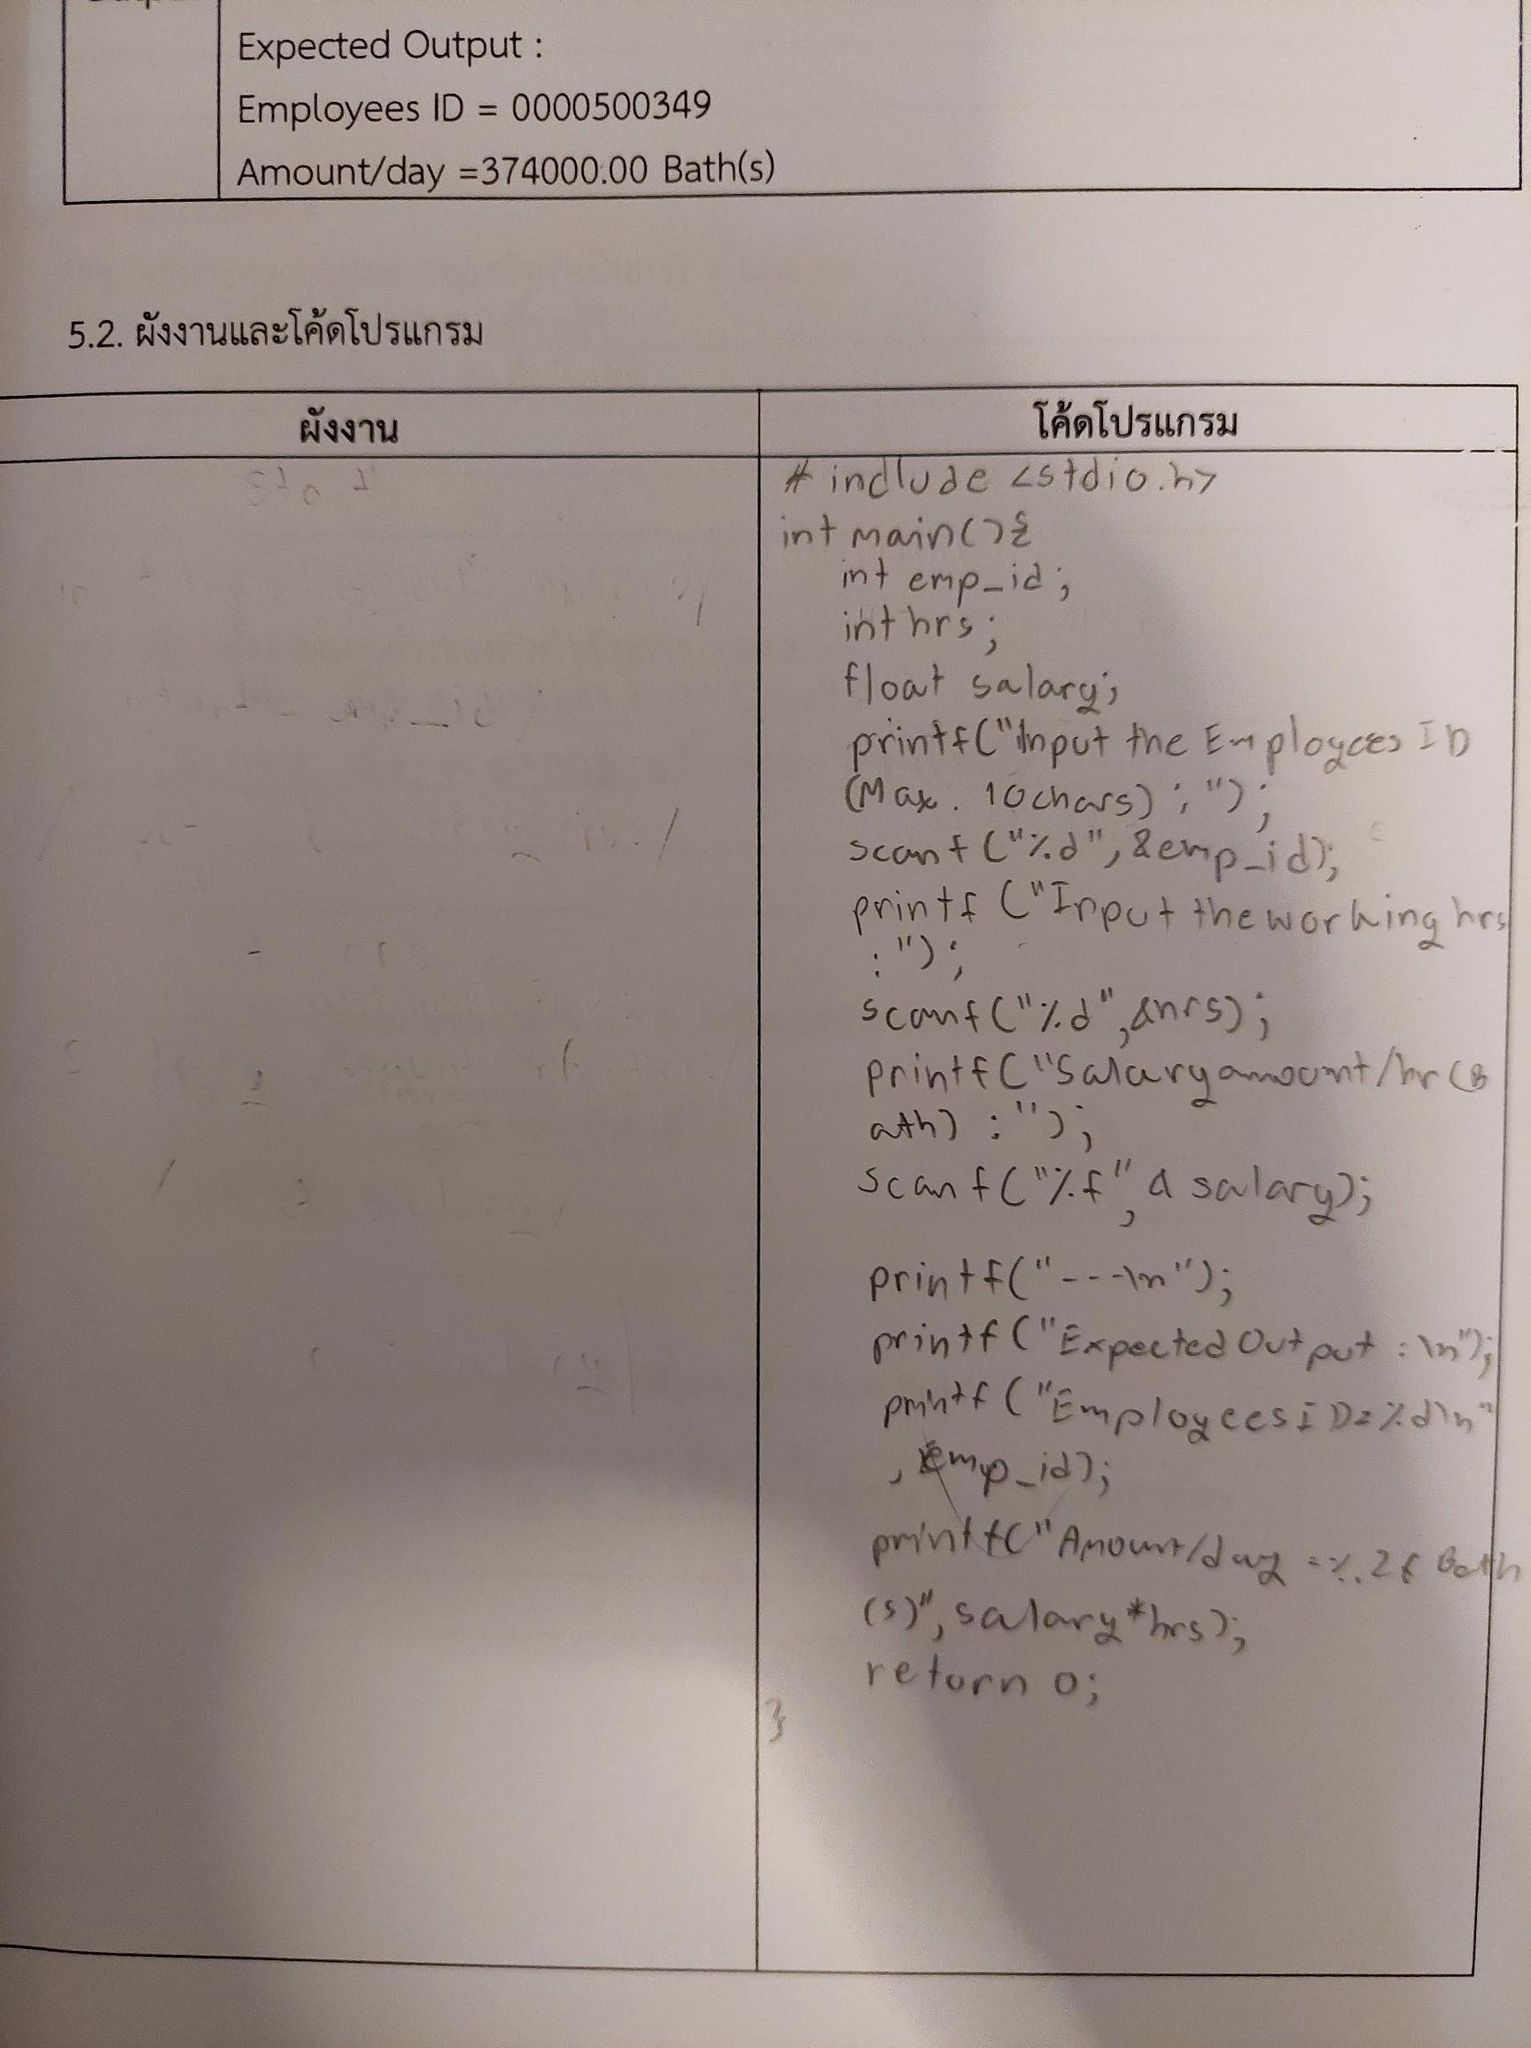 Expected Output :
Employees ID = 0000500349
Amount/day =374000.00 Bath(s)
5.2. ผังงานและโค้ดโปรแกรม
ผังงาน
โค้ดโปรแกรม
# include <stdio.h>
int main(){
int emp_id;
int hrs;
float salary;
printf("Input the Employees ID
(Max. 10chars) : ");
scanf("%d", &emp_id);
printf ("Input the working hrs
: ");
scanf("%d", &hrs);
printf("Salary amount/hr (B
ath) : ");
scanf("%f", & salary);
printf("---\n");
printf ("Expected Output : \n");
printf ("Employees ID= %d\n"
, emp_id);
printf("Amount/day =%.2f Bath
(s)", salary*hrs);
return 0;
}